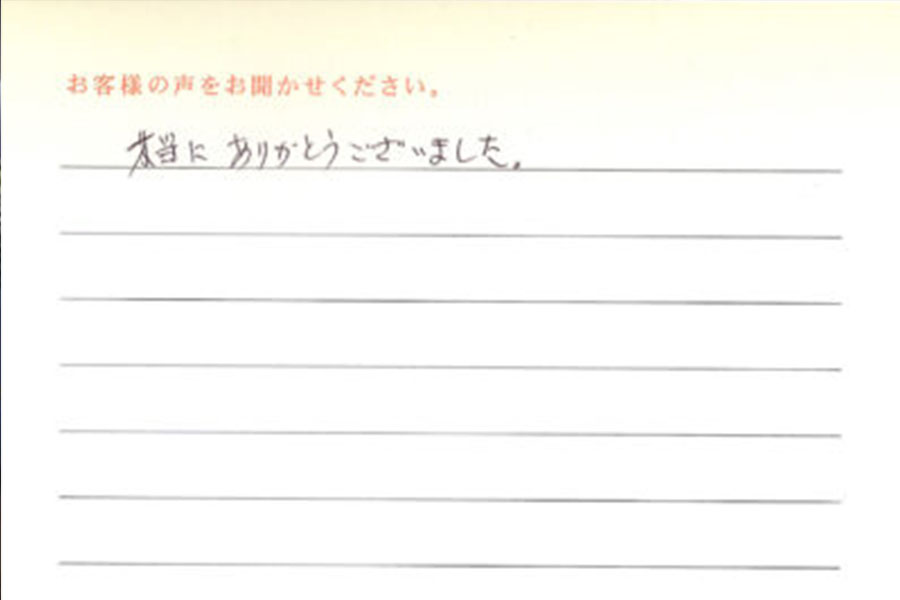 お客様の声をお聞かせください。
本当に ありがとうございました。